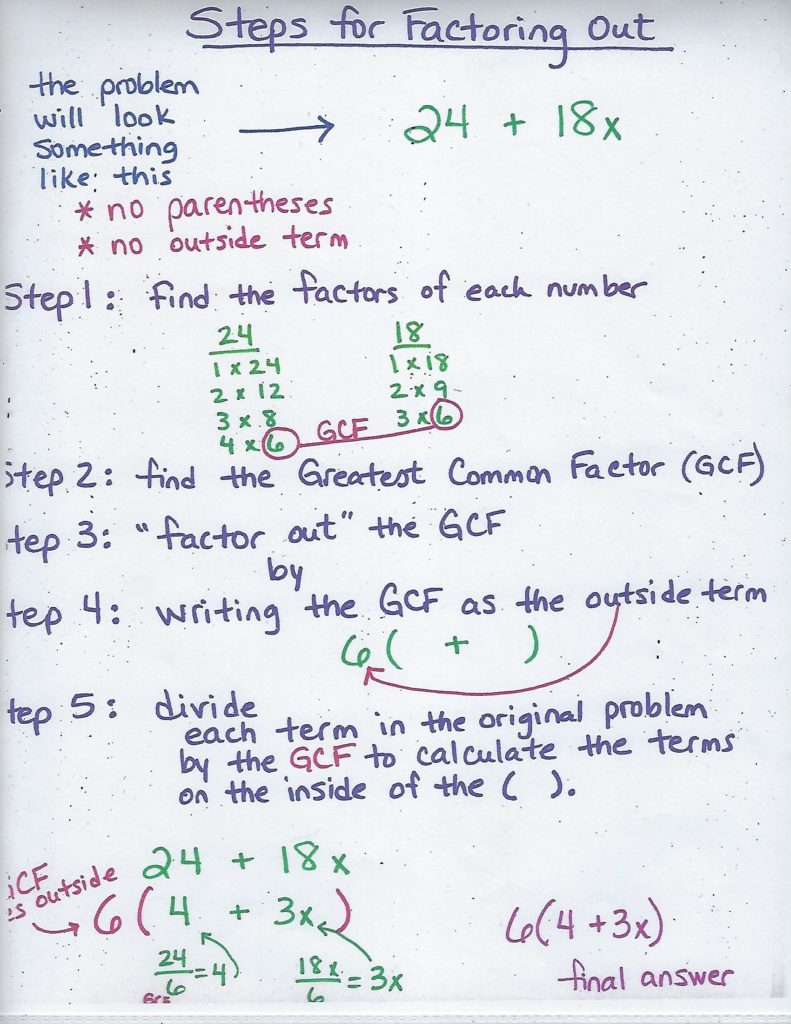 Steps for Factoring Out
the problem
will look
something
like: this
24 + 18x
* no parentheses
* no outside term
Step 1: find the factors of each number
24 18
1 x 24 1 x 18
2 x 12 2 x 9
3 x 8 3 x 6
4 x 6
GCF
Step 2: find the Greatest Common Factor (GCF)
tep 3: "factor out" the GCF
by
tep 4: writing the GCF as the outside term
6( + )
tep 5: divide
each term in the original problem
by the GCF to calculate the terms
on the inside of the ( ).
24 + 18x
GCF
es outside
6(4 + 3x)
24/6 = 4 18x/6 = 3x
6(4 + 3x)
final answer